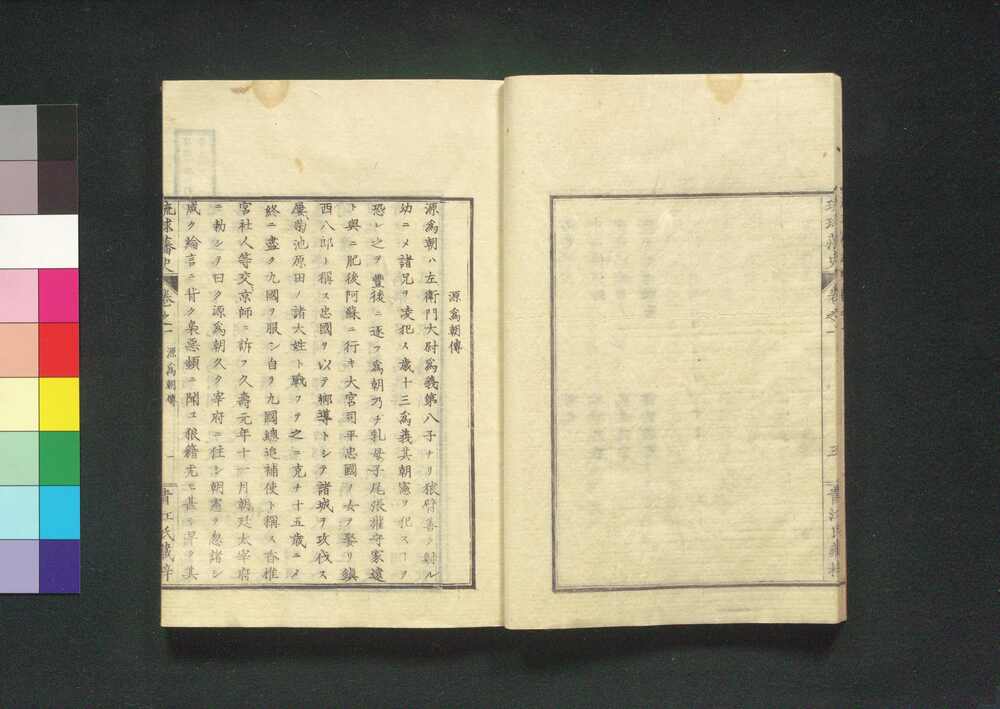 琉球藩史
卷之一
三
青江氏藏梓
源爲朝傳
源爲朝ハ左衛門大尉爲義第八子ナリ猿臂善ク射ル
幼ニメ諸兄ヲ凌犯ス歳十三爲義其朝憲ヲ犯スヿヲ
恐レ之ヲ豐後ニ逐フ爲朝乃チ乳母子尾張權守家遠
ト與ニ肥後阿蘇ニ行キ大宮司平忠國ノ女ヲ娶リ鎭
西八郎ト稱ス忠國ヲ以テ鄉導トシテ諸城ヲ攻伐ス
屢菊池原田ノ諸大姓ト戰フテ之ニ克チ十五歳ニメ
終ニ盡ク九國ヲ服シ自ラ九國總追補使ト稱ス香推
宮社人等交京師ニ訴フ久壽元年十一月朝廷太宰府
ニ勅シテ曰ク源爲朝久ク宰府ニ住シ朝憲ヲ忽諸シ
咸ク綸言ニ背ク梟惡頻ニ聞ユ狼籍尤モ甚シ
琉球藩史
卷之一
源爲朝傳
一
青江氏藏梓